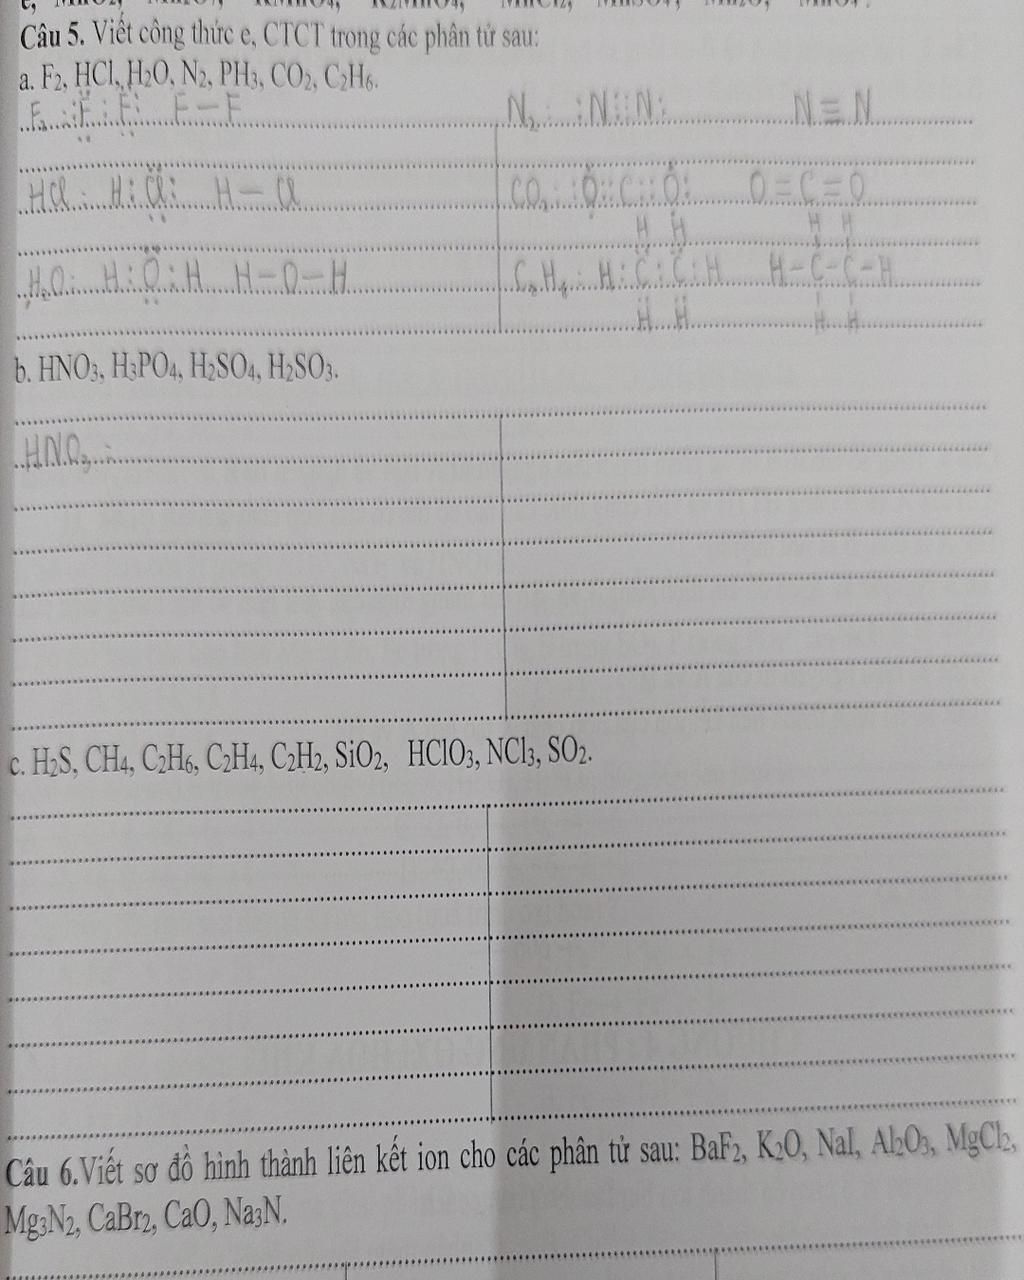 Câu 5. Viết công thức e, CTCT trong các phân tử sau:
a. F₂, HCl, H₂O, N₂, PH₃, CO₂, C₂H₆.
F₂ :F:F: F—F N₂: :N⫶⫶N: N≡N
HCl: H:Cl: H—Cl CO₂: :O::C::O: O=C=O
H H H H
H₂O: H:O:H H—O—H C₂H₆: H:C:C:H H-C-C-H
H H H H
b. HNO₃, H₃PO₄, H₂SO₄, H₂SO₃.
HNO₃:
c. H₂S, CH₄, C₂H₆, C₂H₄, C₂H₂, SiO₂, HClO₃, NCl₃, SO₂.
Câu 6.Viết sơ đồ hình thành liên kết ion cho các phân tử sau: BaF₂, K₂O, NaI, Al₂O₃, MgCl₂,
Mg₃N₂, CaBr₂, CaO, Na₃N.